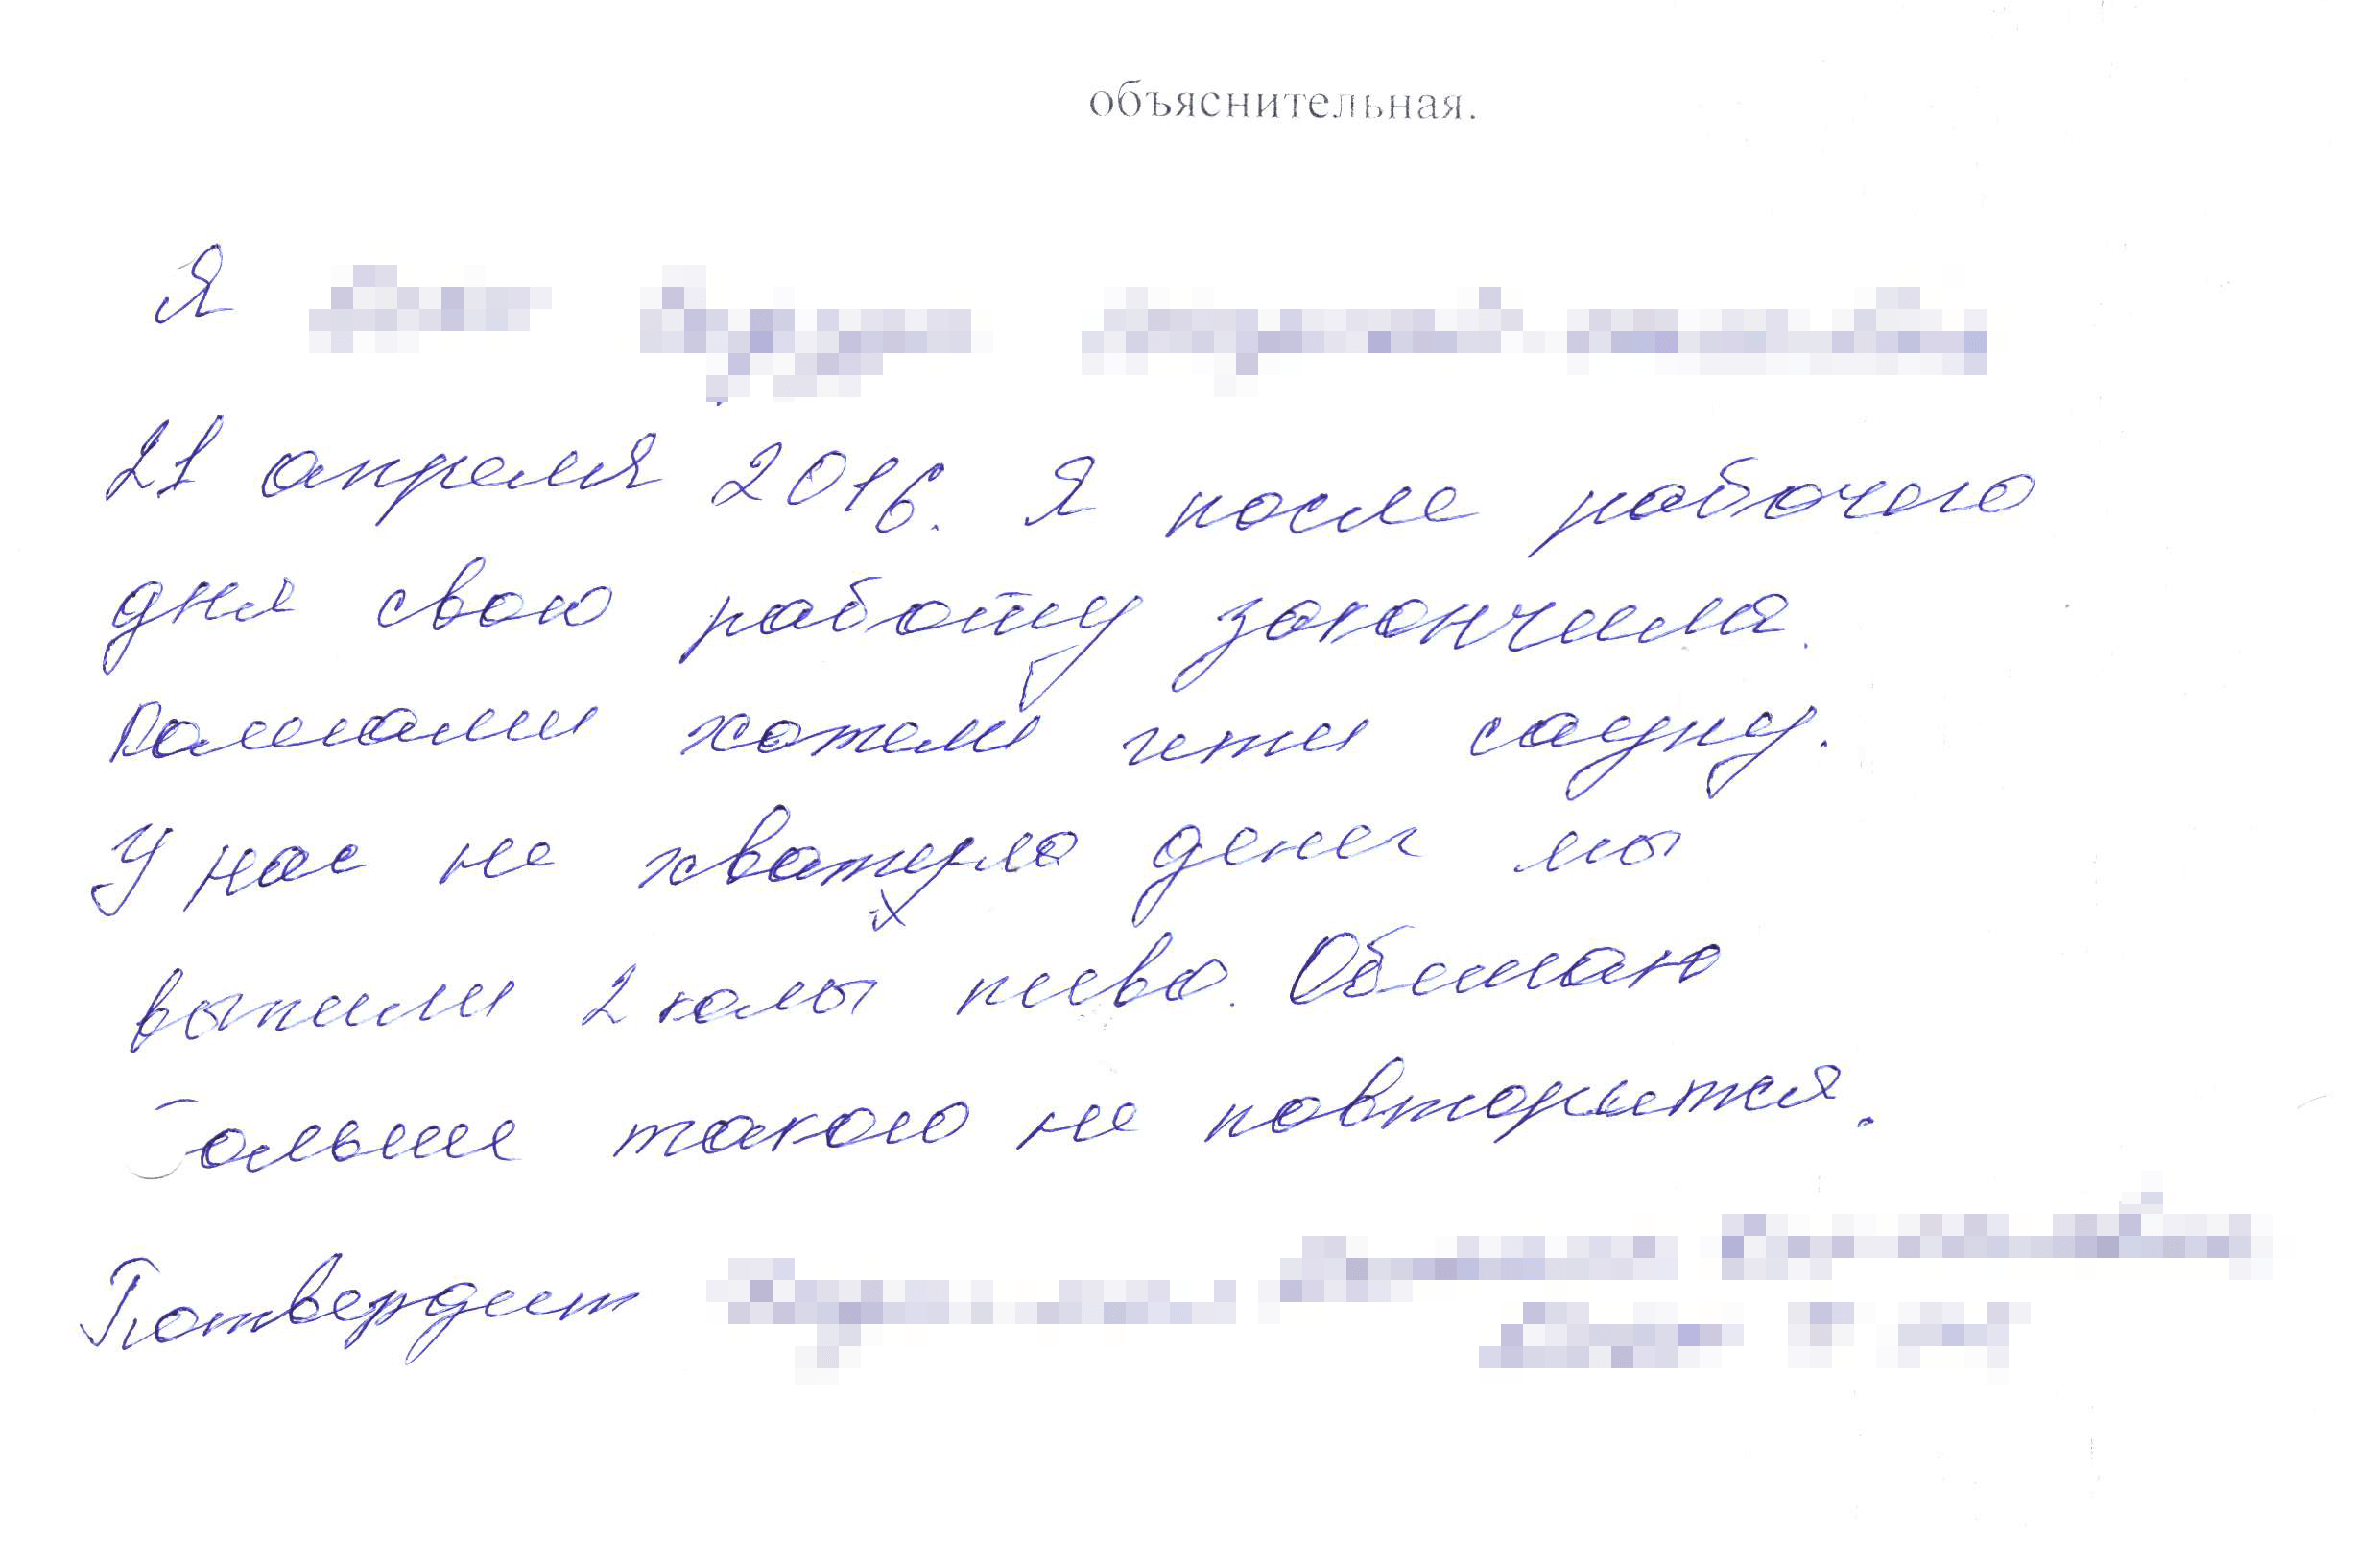 объяснительная.
Я
21 апреля 2016. Я после рабочего
дня свою работу закончила.
хотели ити сауну.
У нас не денег мы
выпили 2 пива. Обешаю
больше такого не повторится.
Потвердит